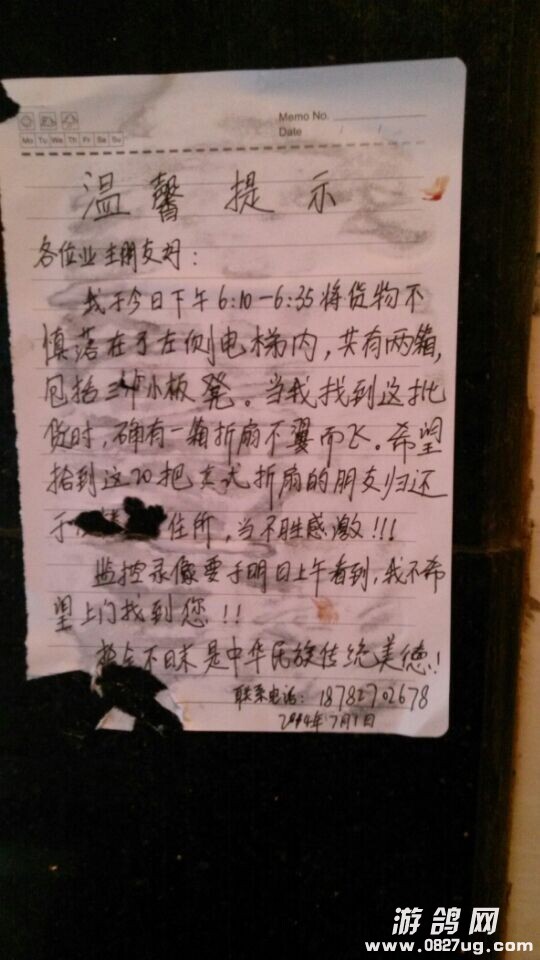 Memo No.
Date
Mo Tu We Th Fr Sa Su
温馨提示
各位业主朋友好：
我于今日下午6:10-6:35将货物不
慎落在了左侧电梯内，共有两箱，
包括三个小板凳。当我找到这批
货时，确有一箱折扇不翼而飞。希望
拾到这20把 式折扇的朋友归还
于 住所，当不胜感激!!!
监控录像要于明日上午看到，我不希
望上门找到您!!
拾金不昧是中华民族传统美德!
联系电话：18782702678
2014年7月1日
游鸽网
www.0827ug.com